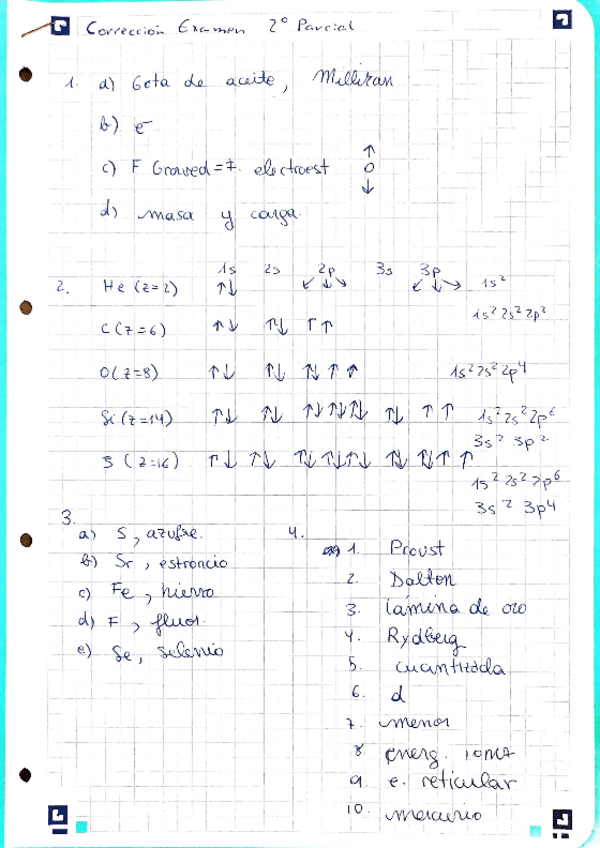 Corrección Examen 2º Parcial
1. a) Gota de aceite, Millikan
b) e⁻
c) F Graved = F. electroest ↑ O ↓
d) masa y carga.
1s 2s 2p 3s 3p
2. He (z=2) ↑↓ ↙ ↓ ↘ ↙ ↓ ↘ 1s²
C (z=6) ↑↓ ↑↓ ↑ ↑ 1s² 2s² 2p²
O (z=8) ↑↓ ↑↓ ↑↓ ↑ ↑ 1s² 2s² 2p⁴
Si (z=14) ↑↓ ↑↓ ↑↓ ↑↓ ↑↓ ↑↓ ↑ ↑ 1s² 2s² 2p⁶
3s² 3p²
S (z=16) ↑↓ ↑↓ ↑↓ ↑↓ ↑↓ ↑↓ ↑↓ ↑ ↑ 1s² 2s² 2p⁶
3s² 3p⁴
3.
a) S, azufre.
b) Sr, estroncio
c) Fe, hierro
d) F, fluor.
e) Se, selenio
4.
1. Proust
2. Dalton
3. lámina de oro
4. Rydberg
5. cuantizada
6. d
7. menor
8 energ. ioniz
9. e. reticular
10. mercurio